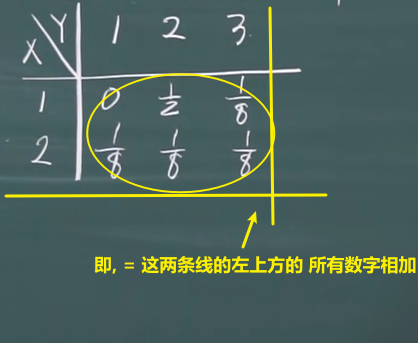 X Y 1 2 3
1 0 1/2 1/8
2 1/8 1/8 1/8
即, = 这两条线的左上方的 所有数字相加